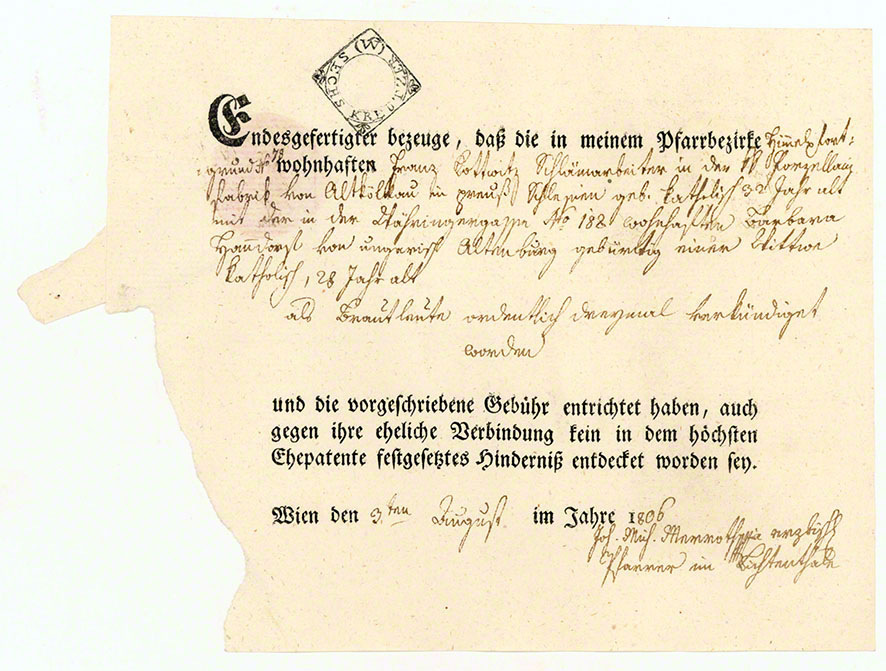 (W) SECHS KREUTZER
Endesgefertigter bezeuge, daß die in meinem Pfarrbezirke Himmelport=
grund No 78 wohnhaften Franz Kottwitz Schlämarbeiter in der Porzellain
Fabrik von Altköllnau in preuß Schlesien geb. katholisch 32 Jahr alt
mit der in der Währingergasse No 182 wohnhaften Barbara
Handorst von ungerisch Altenburg gebürtig einer Wittwe
katholisch, 28 Jahr alt
als Brautleute ordentlich dreymal verkündiget
worden
und die vorgeschriebene Gebühr entrichtet haben, auch
gegen ihre eheliche Verbindung kein in dem höchsten
Ehepatente festgesetztes Hinderniß entdecket worden sey.
Wien den 3ten August im Jahre 1806
Joh. Mich.
Pfarrer im Lichtenthale